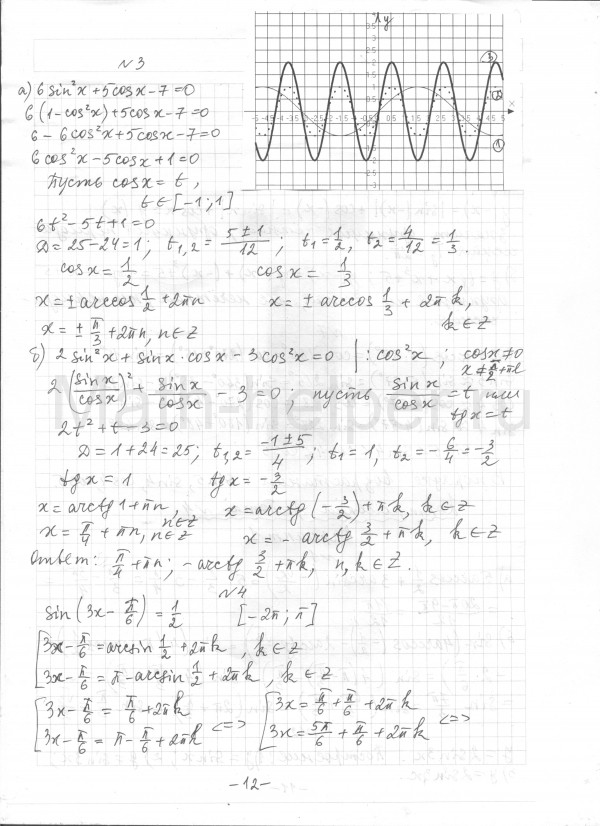 N 3
а) 6 sin²x + 5cosx - 7 = 0
6 (1 - cos²x) + 5cosx - 7 = 0
6 - 6 cos²x + 5cosx - 7 = 0
6 cos²x - 5cosx + 1 = 0
Пусть cosx = t,
t ∈ [-1; 1]
6t² - 5t + 1 = 0
D = 25 - 24 = 1; t₁,₂ = (5 ± 1)/12; t₁ = 1/2, t₂ = 4/12 = 1/3.
cosx = 1/2 cosx = 1/3
x = ± arccos 1/2 + 2πn x = ± arccos 1/3 + 2πk,
x = ± π/3 + 2πn, n ∈ Z k ∈ Z
б) 2 sin²x + sinx · cosx - 3cos²x = 0 | : cos²x; cosx ≠ 0
x ≠ π/2 + πl
2 (sinx/cosx)² + sinx/cosx - 3 = 0; пусть sinx/cosx = t или
tgx = t
2t² + t - 3 = 0
D = 1 + 24 = 25; t₁,₂ = (-1 ± 5)/4; t₁ = 1, t₂ = -6/4 = -3/2
tgx = 1 tgx = -3/2
x = arctg1 + πn, n ∈ Z x = arctg (-3/2) + πk, k ∈ Z
x = π/4 + πn, n ∈ Z x = - arctg 3/2 + πk, k ∈ Z
Ответ: π/4 + πn; - arctg 3/2 + πk, n, k ∈ Z.
N 4
sin (3x - π/6) = 1/2 [-2π; π]
[3x - π/6 = arcsin 1/2 + 2πk, k ∈ Z
3x - π/6 = π - arcsin 1/2 + 2πk, k ∈ Z
[3x - π/6 = π/6 + 2πk <=> [3x = π/6 + π/6 + 2πk <=>
3x - π/6 = π - π/6 + 2πk 3x = 5π/6 + π/6 + 2πk
-12-
y
x
3
2
1
Math-helper.ru